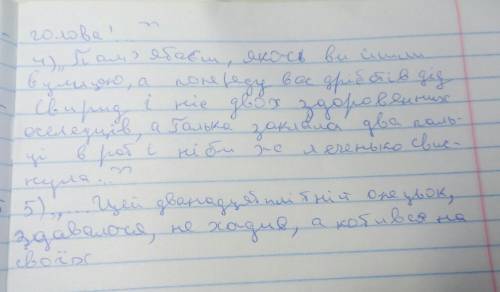 голова! "
4) „Пам'ятаєш, якось ви ішли
вулицею, а попереду вас дріботів дід
Свирид і ніс двох здоровенних
оселедців, а Галька заклала два паль-
ці в рот і ніби легенько свис-
нула..."
5) „... Цей дванадцятилітній опецьок,
здавалося, не ходив, а котився на
своїх